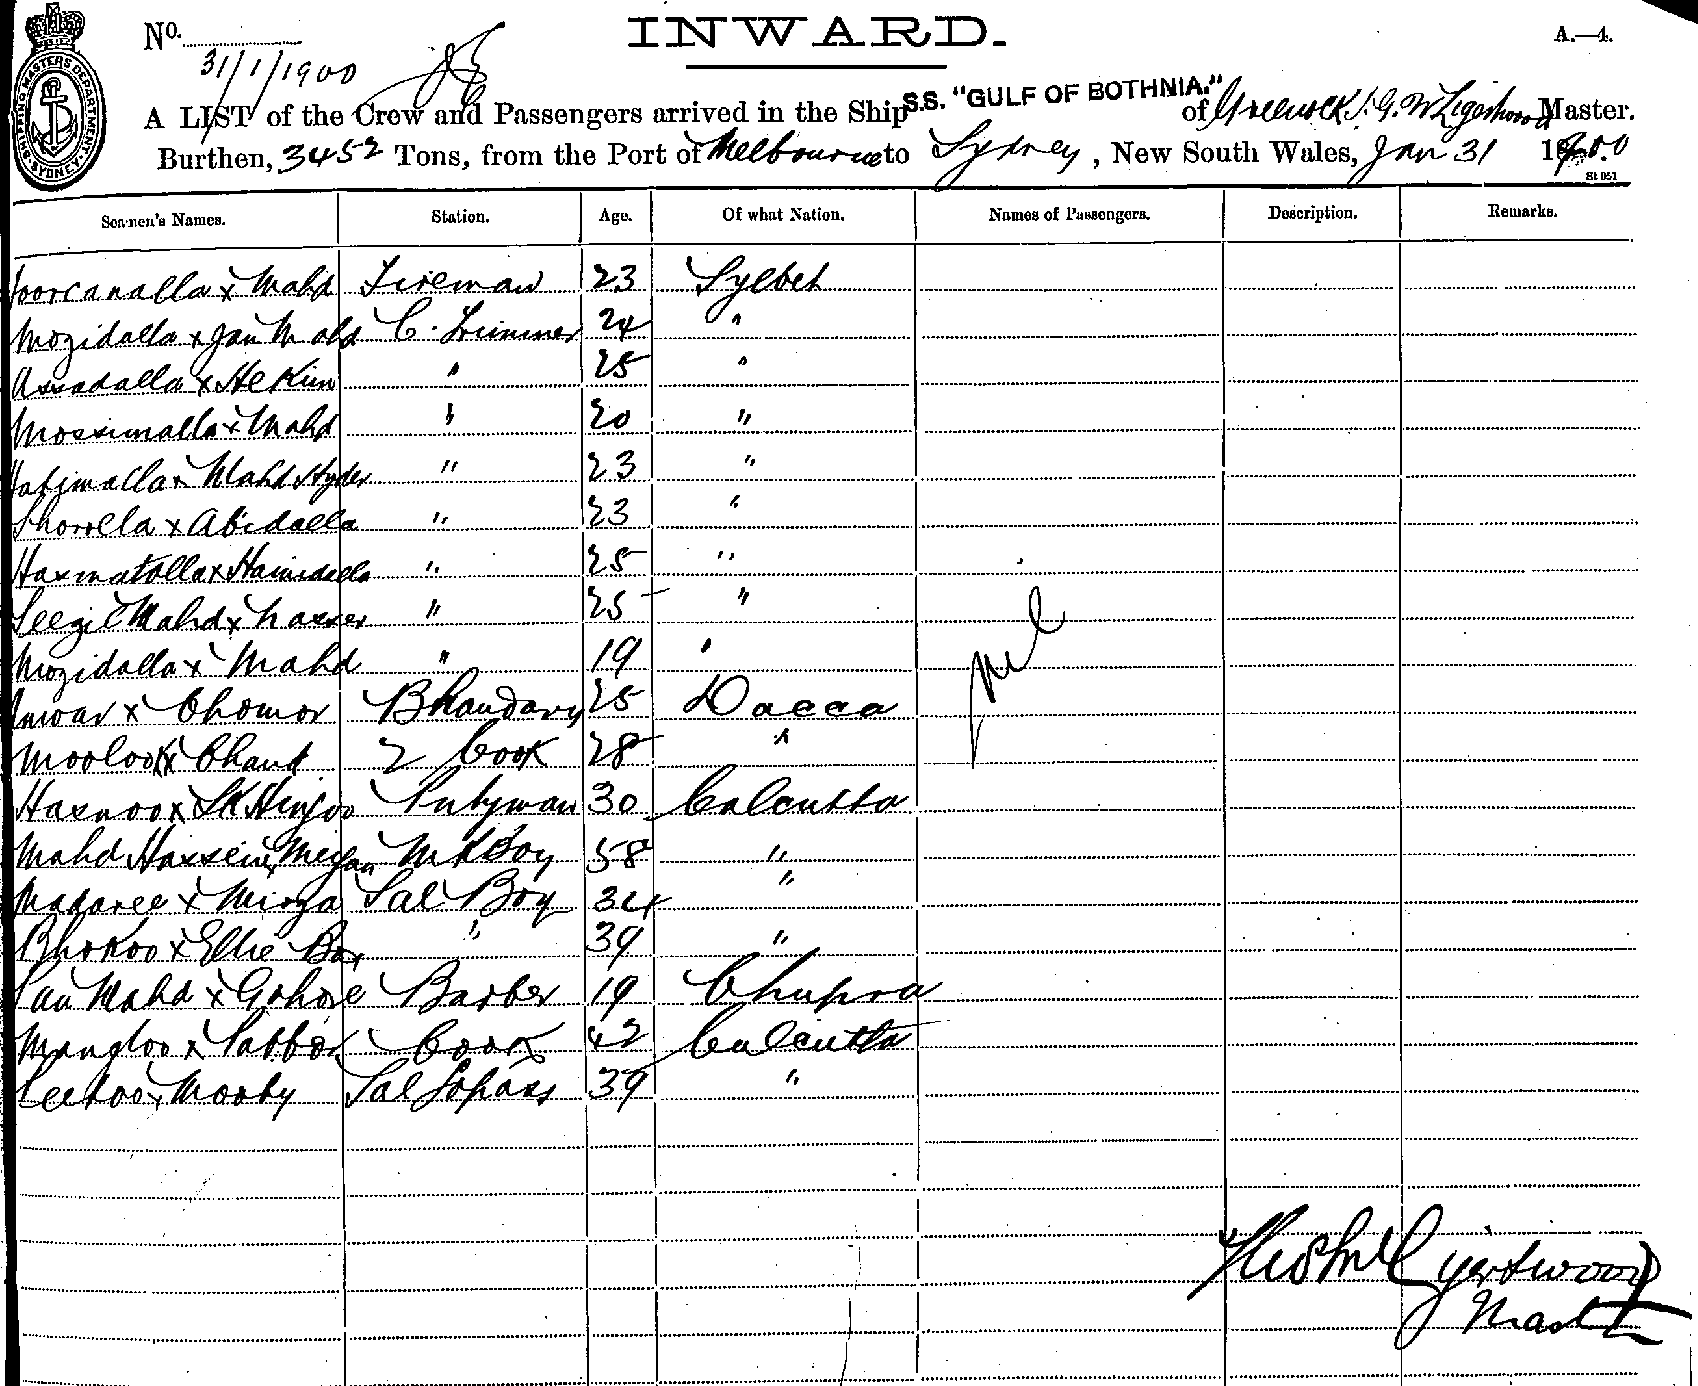 No. INWARD. A.—4.
31/1/1900
SHIPPING MASTERS DEPARTMENT SYDNEY
A LIST of the Crew and Passengers arrived in the Ship S.S. "GULF OF BOTHNIA." of Greenock Master.
Burthen, 3452 Tons, from the Port of Melbourne to Sydney, New South Wales, Jan 31 1900
St 051
Seamen's Names. Station. Age. Of what Nation. Names of Passengers. Description. Remarks.
x Mahd Fireman 23 Sylhet
Mozidalla x Jan Mahd C. Trimmer 24 "
Assadalla x Hekim " 25 "
Mossimalla x Mahd " 20 "
x Mahd Hyder " 23 "
x Abidalla " 23 "
Hasmatolla x Hamidalla " 25 "
Mahd x Nasser " 25 "
Mozidalla x Mahd " 19 "
x Chomor Bhandary 25 Dacca
x Chand 2 Cook 28 "
Hasnoo x Sk 30 Calcutta
Mahd Hassein x Boy 58 "
Madaree x Mirza Sal Boy 34 "
Bhokoo x Ellie Bax " 39 "
Jan Mahd x Barber 19 Chupra
Mungloo x Cook 42 Calcutta
x Sal Topass 39 "
nil
Master